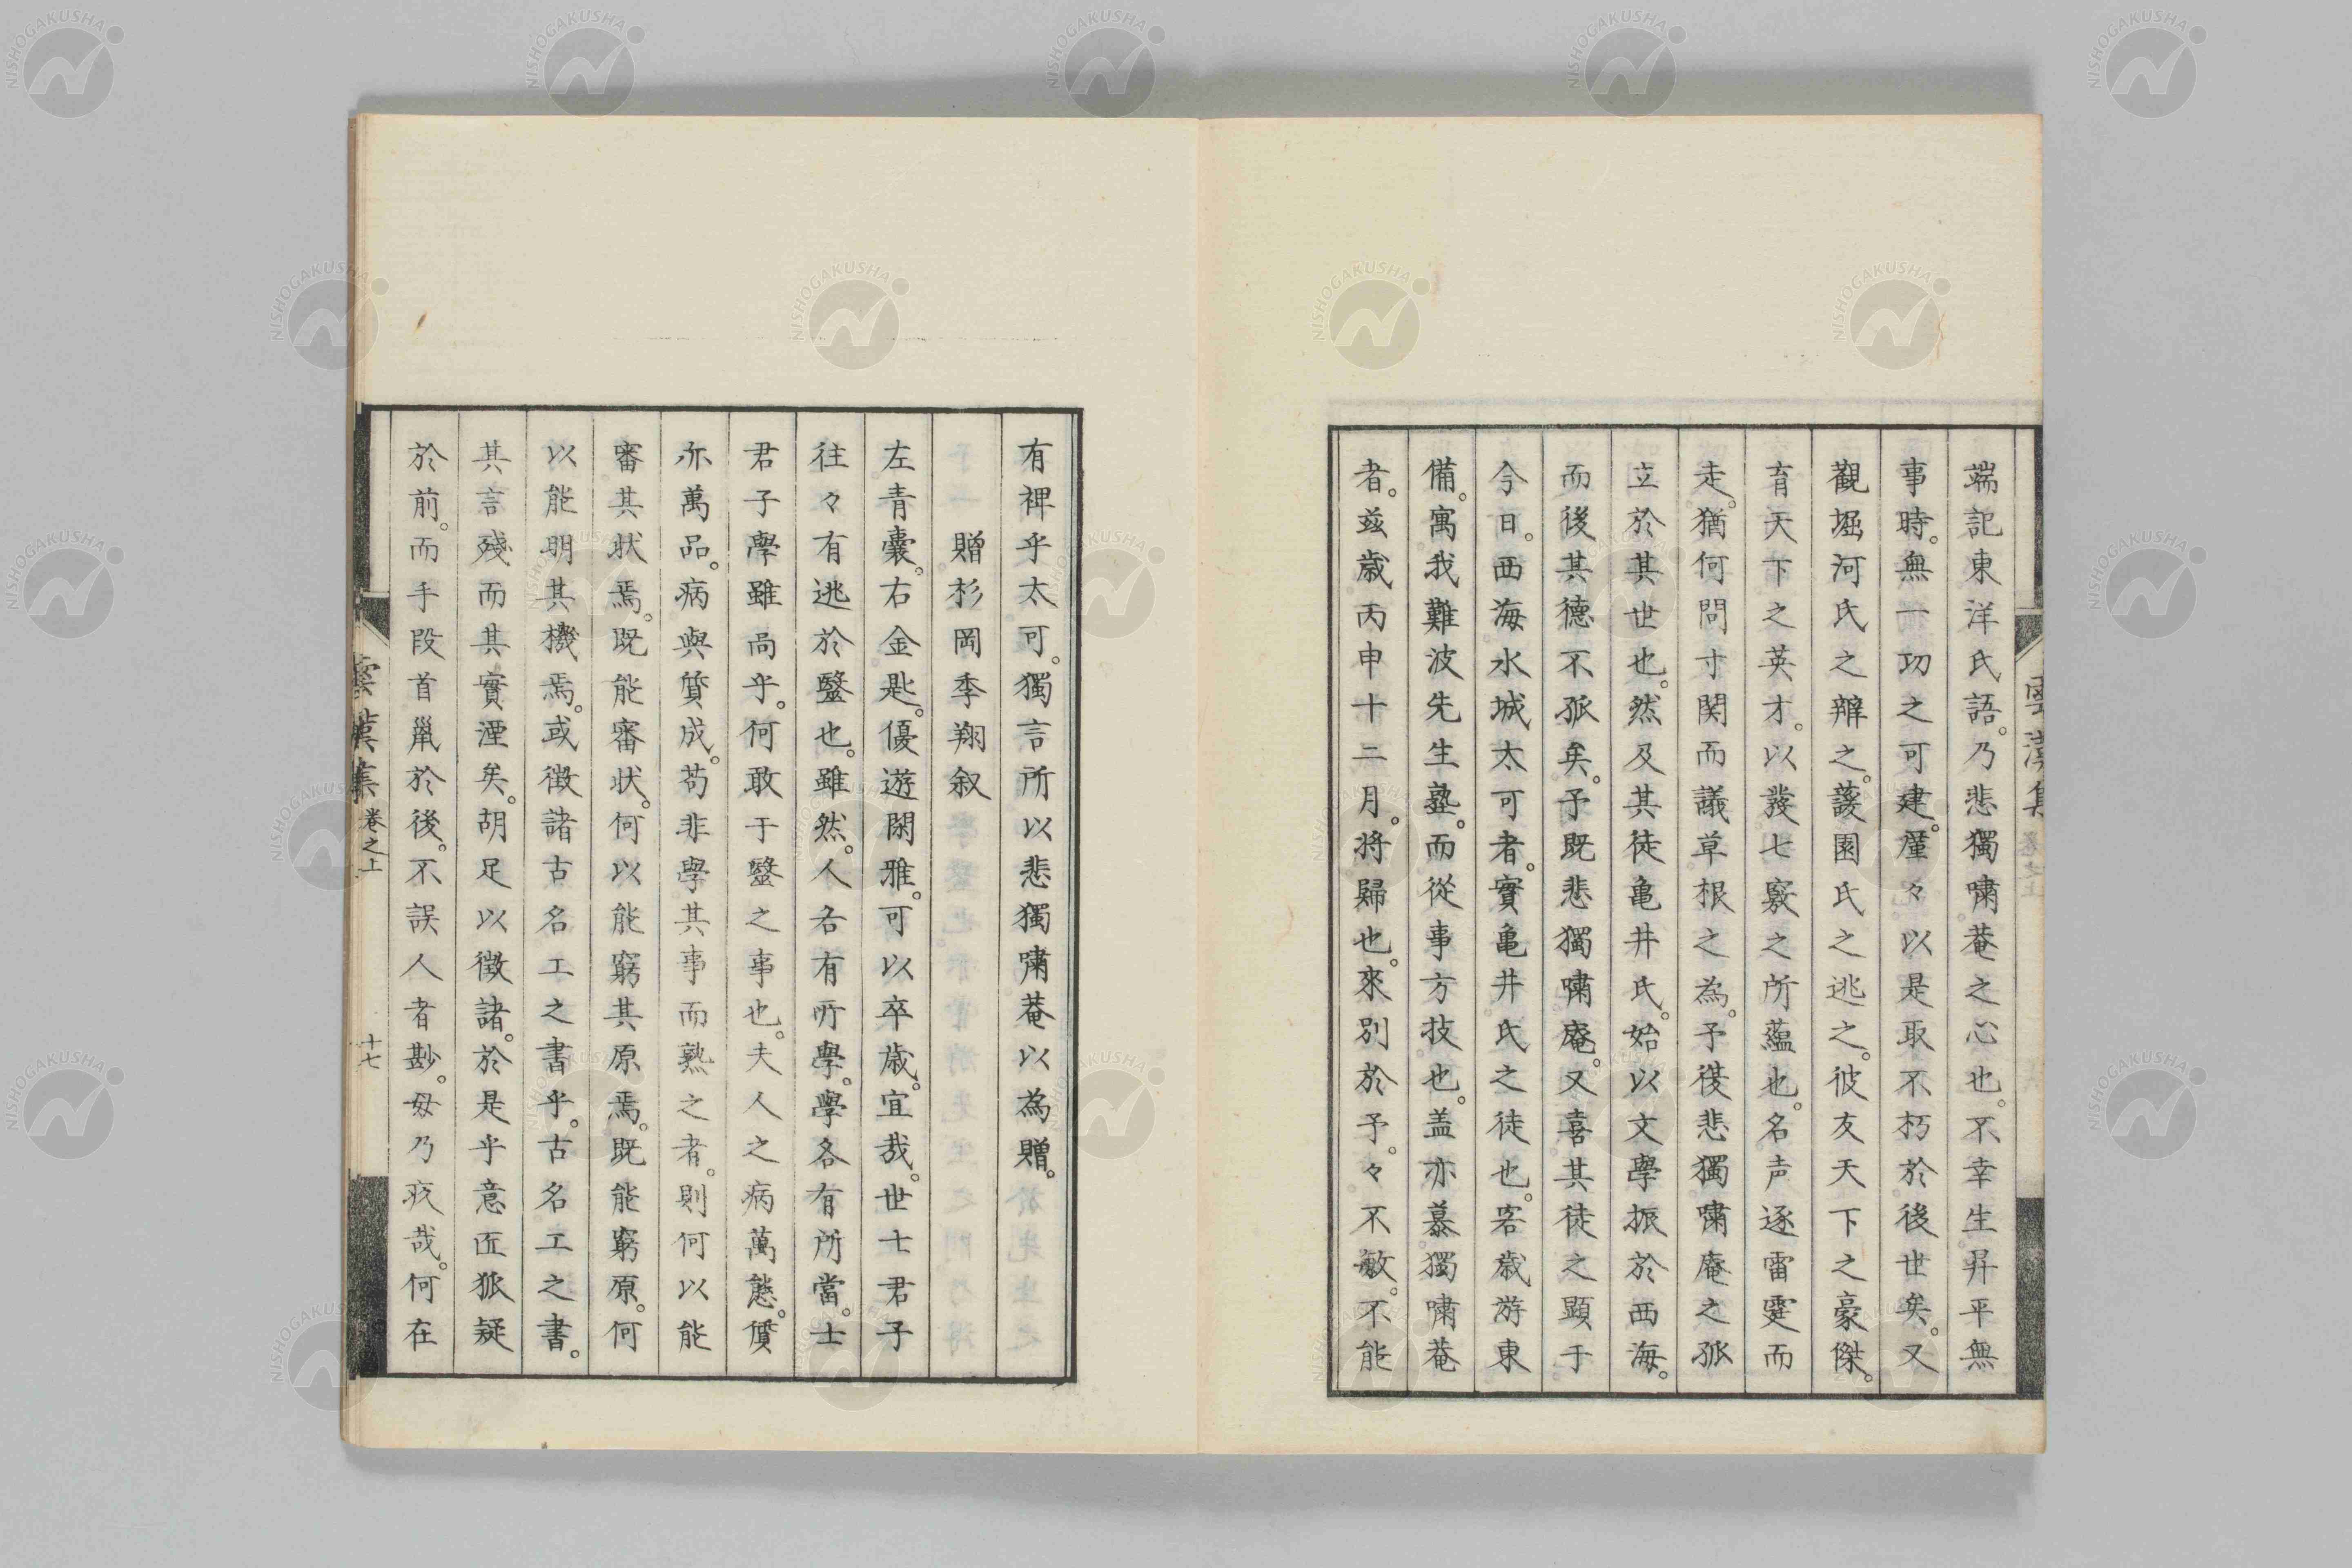 端記東洋氏語。乃悲獨嘯菴之心也。不幸生昇平無
事時。無一功之可建。廑々以是取不朽於後世矣。又
觀堀河氏之辯之。蘐園氏之逃之。彼友天下之豪傑。
育天下之英才。以發七竅之所蘊也。名声逐雷霆而
走。猶何問寸関而議草根之為。予從悲獨嘯庵之孤
立於其世也。然及其徒亀井氏。始以文學振於西海。
而後其德不孤矣。予既悲獨嘯庵。又喜其徒之顕于
今日。西海水城太可者。實亀井氏之徒也。客歳游東
備。寓我難波先生塾。而從事方技也。盖亦慕獨嘯菴
者。茲歳丙申十二月。将歸也。來別於予。々不敏。不能
有裨乎太可。獨言所以悲獨嘯菴以為贈。
贈杉岡季翔叙
左青嚢。右金匙。優遊閑雅。可以卒歳。宜哉。世士君子
往々有逃於醫也。雖然。人各有所學。學各有所當。士
君子學雖尚乎。何敢于醫之事也。夫人之病萬態。質
亦萬品。病與質成。苟非學其事而熟之者。則何以能
審其状焉。既能審状。何以能窮其原焉。既能窮原。何
以能明其機焉。或徴諸古名工之書乎。古名工之書。
其言殘而其實湮矣。胡足以徴諸。於是乎意匠狐疑
於前。而手段首鼠於後。不誤人者尠。毋乃疚哉。何在
雲漢集 卷之上 十七
雲漢集